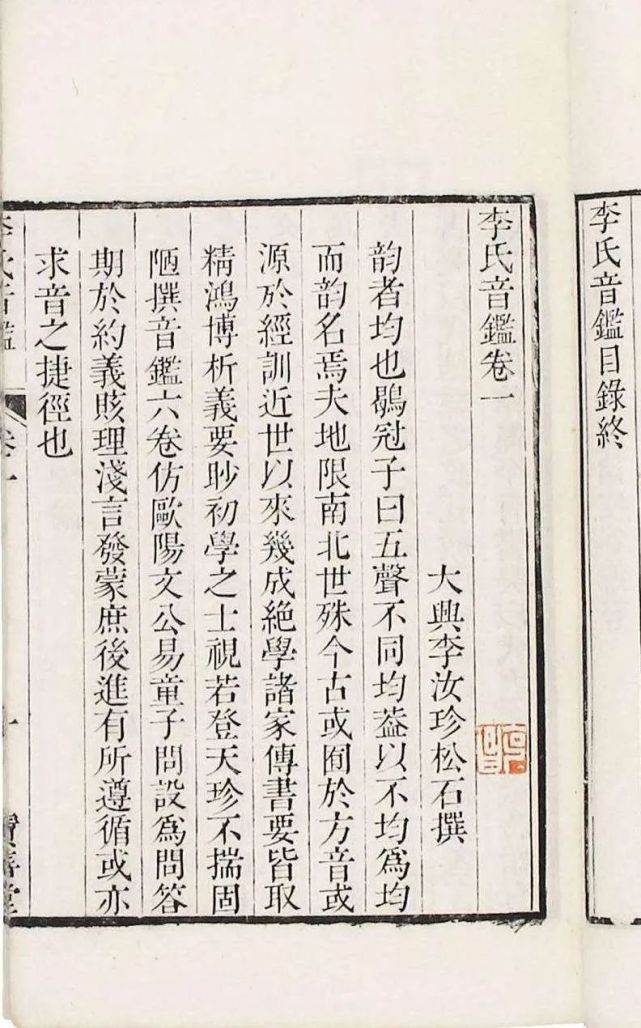 李氏音鑑目錄終
李氏音鑑卷一
大興李汝珍松石撰
韵者均也鶡冠子曰五聲不同均葢以不均爲均
而韵名焉夫地限南北世殊今古或囿於方音或
源於經訓近世以來幾成絶學諸家傳書要皆取
精鴻博析義要眇初學之士視若登天珍不揣固
陋撰音鑑六卷仿歐陽文公易童子問設爲問答
期於約義賅理淺言發蒙庶後進有所遵循或亦
求音之捷徑也
李氏音鑑 卷一 一